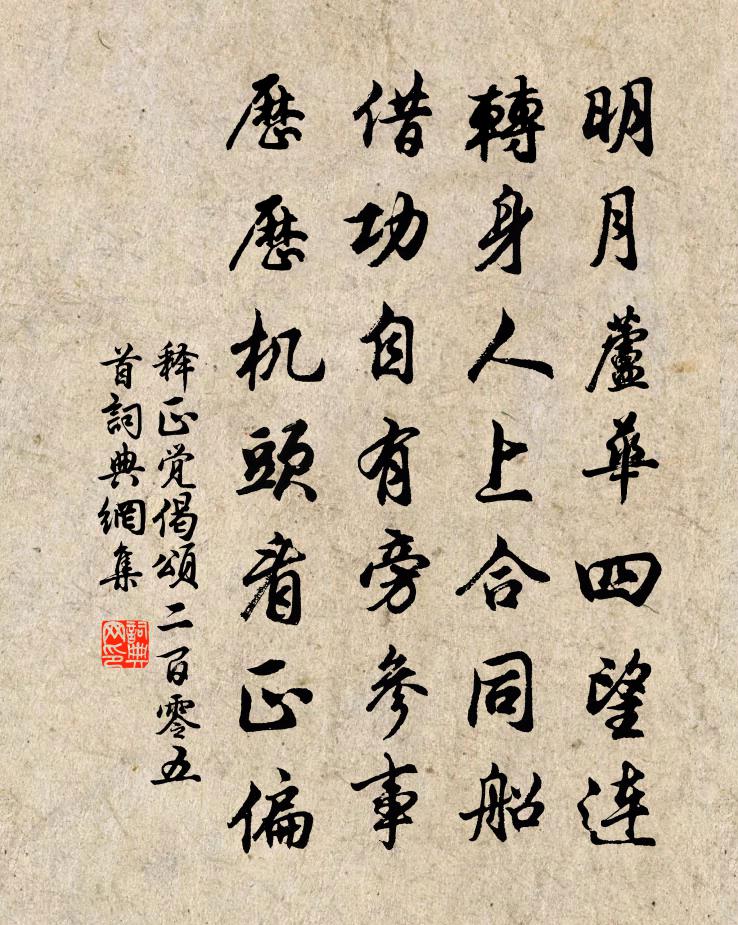 明月蘆華四望連
轉身人上合同船
借功自有旁參事
歷歷机頭看正偏
释正觉偈頌二百零五
首詞典網集
詞典
网印